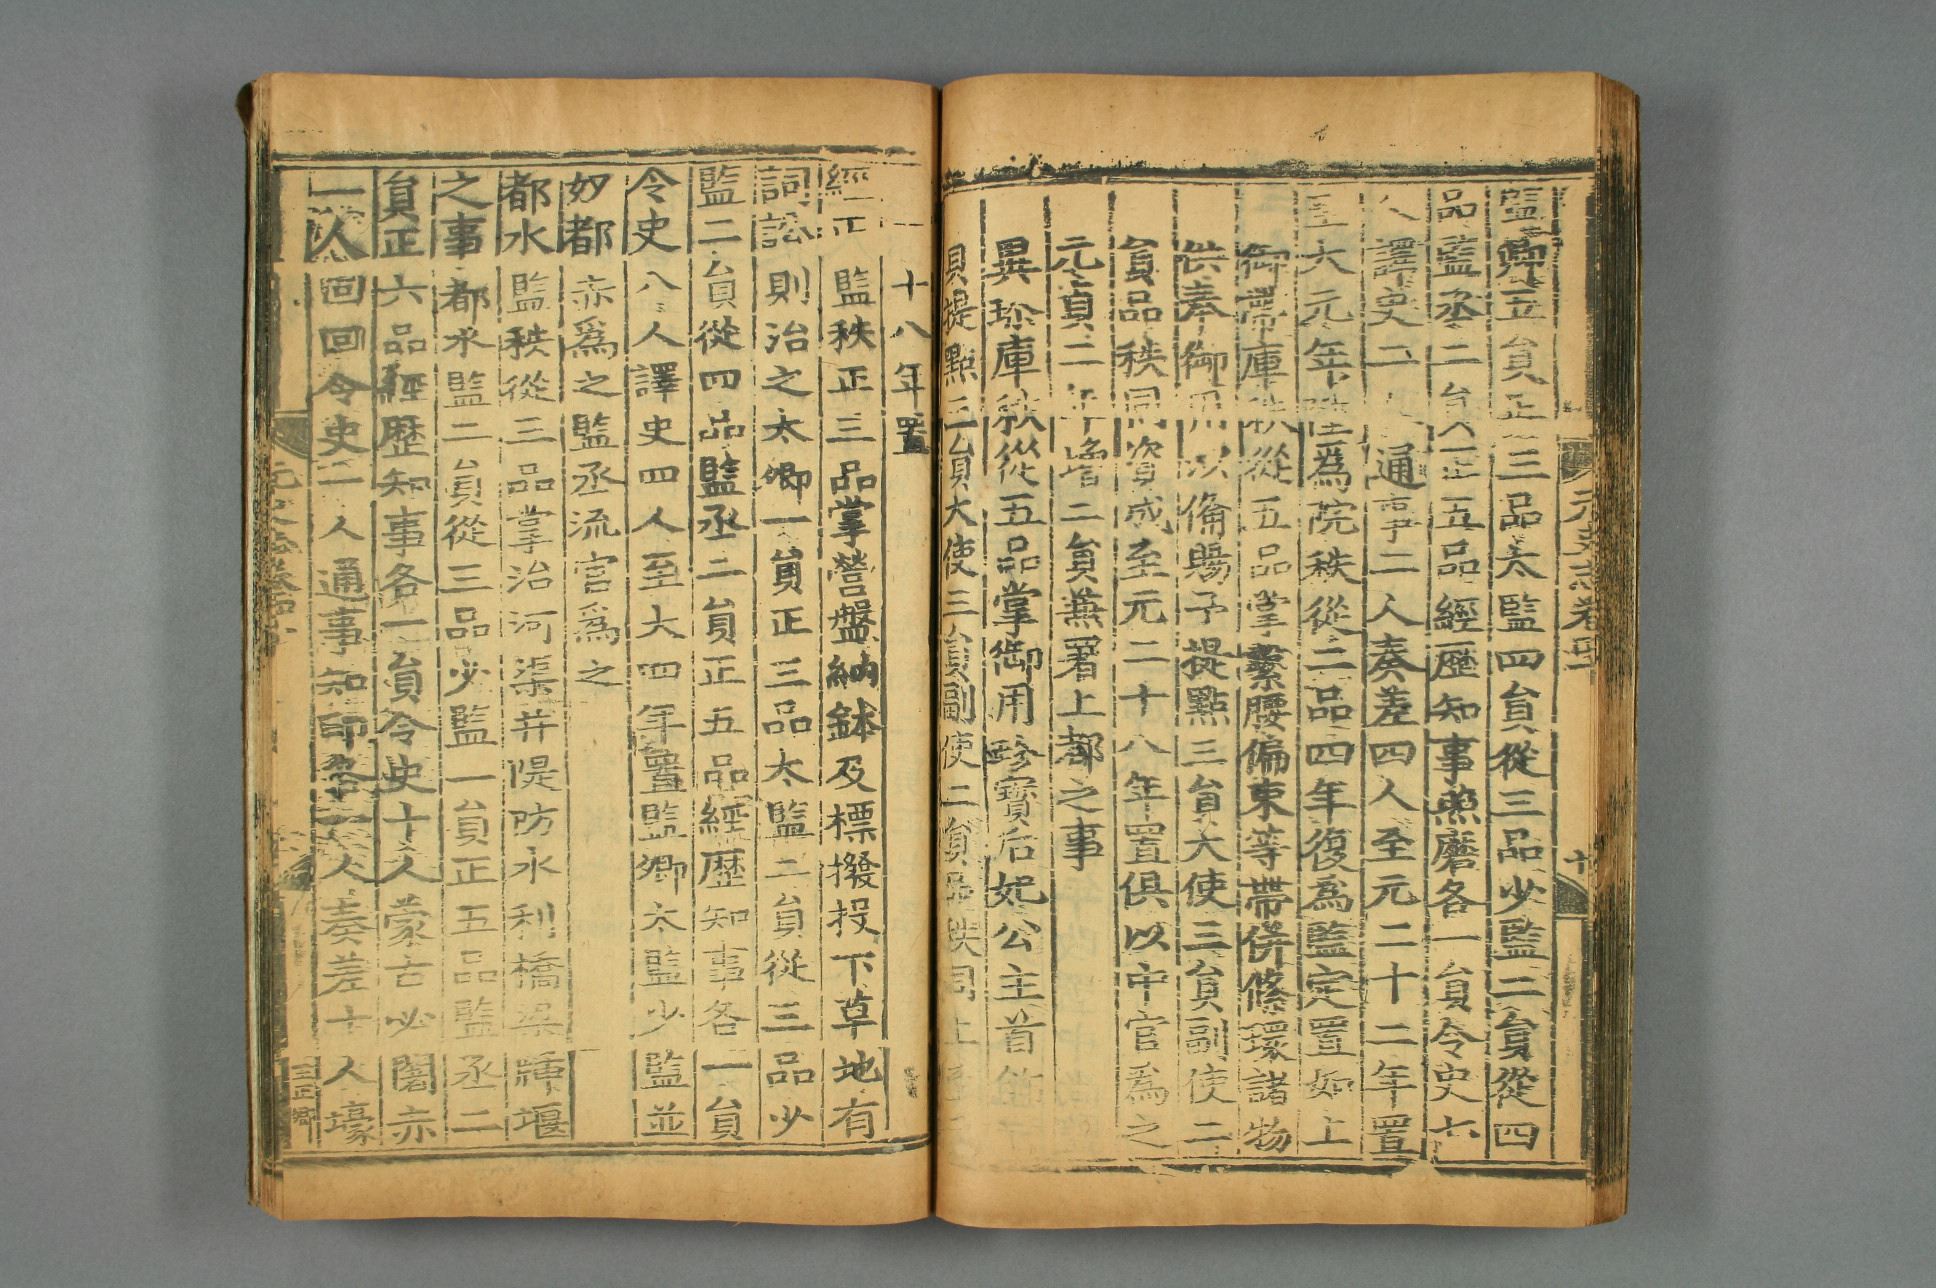 監卿五員正三品太監四員從三品少監二員從四
品監丞二員正五品經歷知事照磨各一員令史六
人譯史二人通事二人奏差四人至元二十二年置
至大元年陞爲院秩從二品四年復爲監定置如上
御帶庫秩從五品掌繫腰偏束等帶併絛環諸物
供奉御用以備賜予提點三員大使三員副使二
員品秩同資成至元二十八年置俱以中官爲之
元貞二年增二員兼署上都之事
異珍庫秩從五品掌御用珍寶后妃公主首飾
員提點三員大使三員副使二員品秩同上
十八年置
經正監秩正三品掌營盤納鉢及標撥投下草地有
詞訟則治之太卿一員正三品太監二員從三品少
監二員從四品監丞二員正五品經歷知事各一員
令史八人譯史四人至大四年置監卿太監少監並
奴都赤爲之監丞流官爲之
都水監秩從三品掌治河渠并隄防水利橋梁牐堰
之事都水監二員從三品少監一員正五品監丞二
員正六品經歷知事各一員令史十人蒙古必闍赤
一人回回令史一人通事知印各一人奏差十人壕